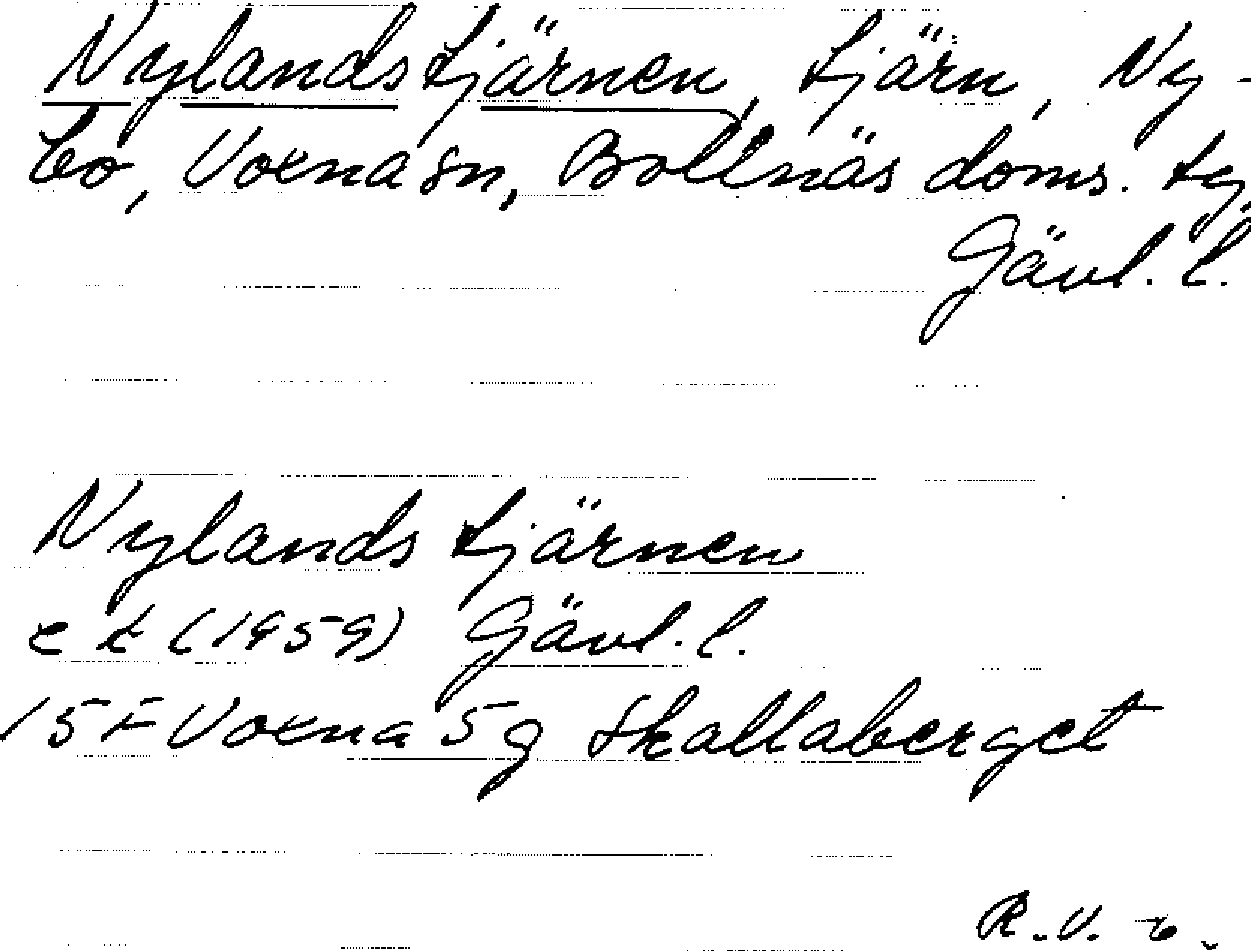 Nylandstjärnen, tjärn, Ny-
bo, Voxna sn, Bollnäs doms. tg,
Gävl. l.
Nylands tjärnen
e k (1959) Gävl. l.
15 F Voxna 5 g Skallaberget
R.V.